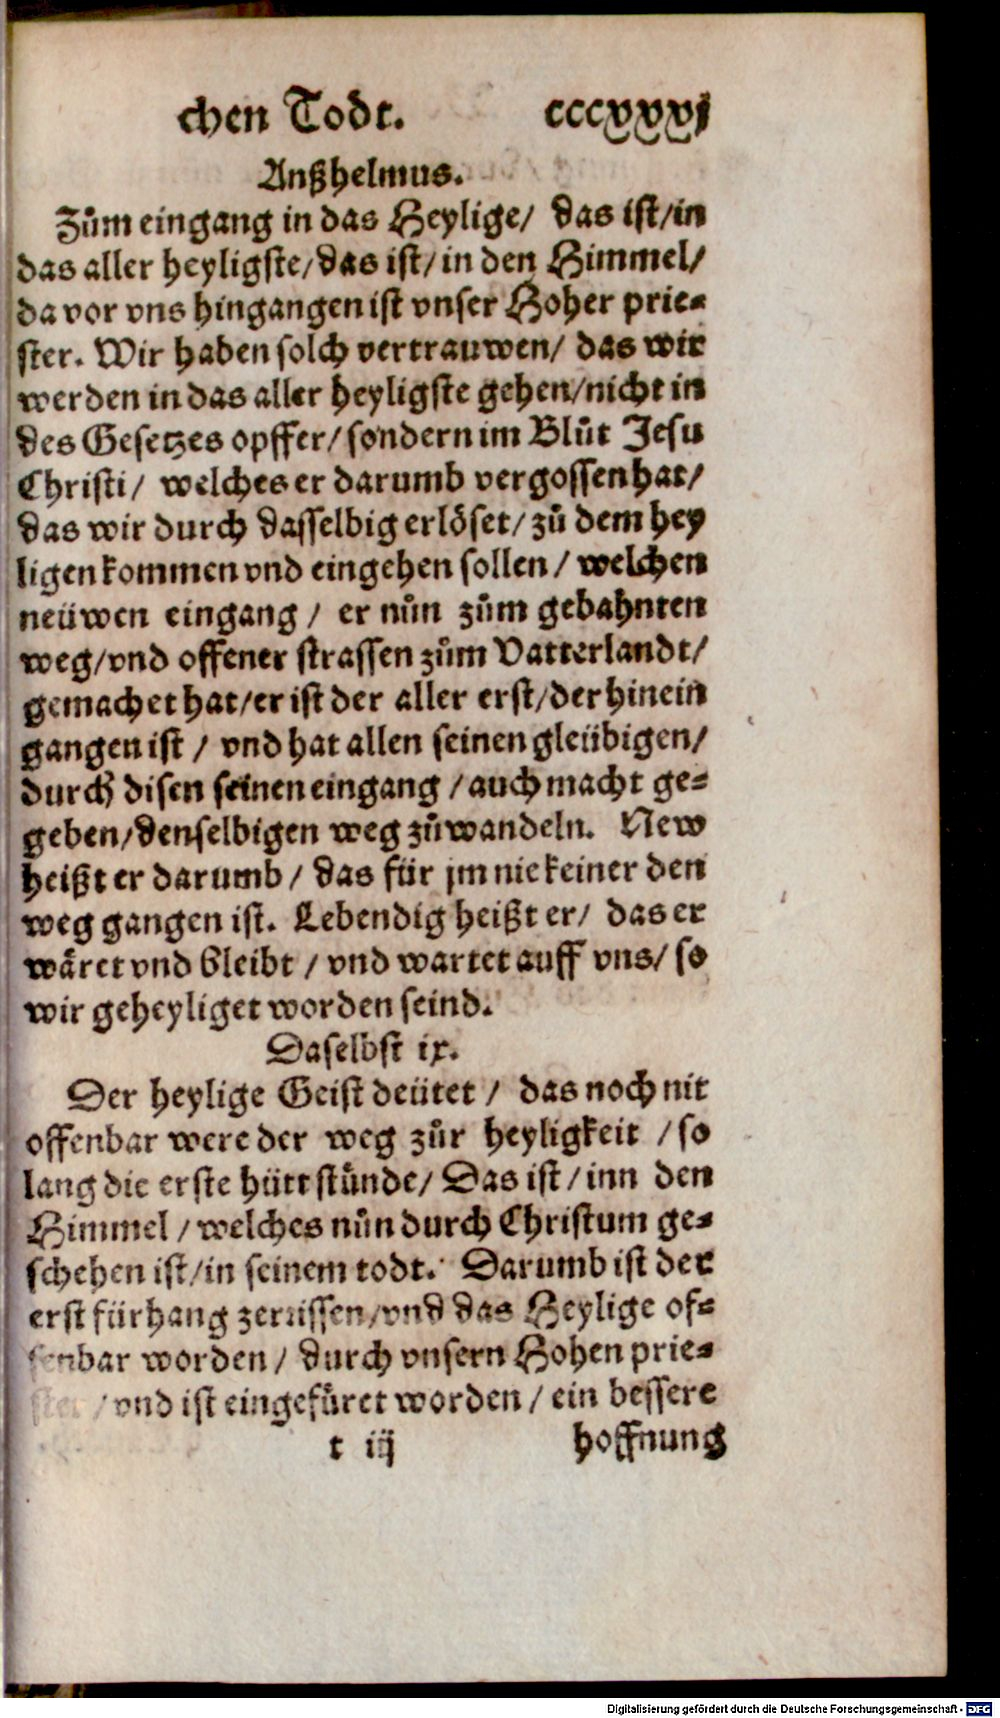 chen Todt. cccxxxj
Anßhelmus.
Zům eingang in das Heylige/ das ist/in
das aller heyligste/das ist/in den Himmel/
da vor vns hingangen ist vnser Hoher prie-
ster. Wir haben solch vertrauwen/ das wir
werden in das aller heyligste gehen/nicht in
des Gesetzes opffer/sondern im Blůt Jesu
Christi/ welches er darumb vergossen hat/
das wir durch dasselbig erlöset/zů dem hey
ligen kommen vnd eingehen sollen/ welchen
neüwen eingang/ er nůn zům gebahnten
weg/vnd offener strassen zům Vatterlandt/
gemachet hat/er ist der aller erst/der hinein
gangen ist/ vnd hat allen seinen gleübigen/
durch disen seinen eingang/auch macht ge-
geben/denselbigen weg zůwandeln. New
heißt er darumb/ das für jm nie keiner den
weg gangen ist. Lebendig heißt er/ das er
wäret vnd bleibt/ vnd wartet auff vns/ so
wir geheyliget worden seind.
Daselbst ix.
Der heylige Geist deütet/ das noch nit
offenbar were der weg zůr heyligkeit/ so
lang die erste hütt stůnde/ Das ist/inn den
Himmel/welches nůn durch Christum ge-
schehen ist/in seinem todt. Darumb ist der
erst fürhang zerrissen/vnd das Heylige of-
fenbar worden/ durch vnsern Hohen prie-
ster/vnd ist eingefůret worden/ ein bessere
t iij hoffnung
Digitalisierung gefördert durch die Deutsche Forschungsgemeinschaft - DFG